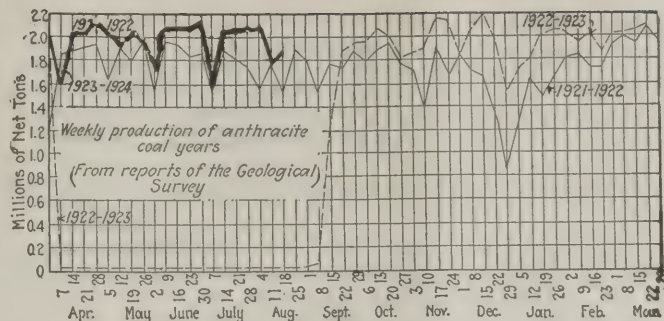 Millions of Net Tons
2.2
2.0
1.8
1.6
1.4
1.2
1.0
0.8
0.6
0.4
0.2
0
1922
1923-1924
1922-1923
1921-1922
Weekly production of anthracite
coal years
(From reports of the Geological
Survey
1922-1923
7 14 21 28 5 12 19 26 2 9 16 23 30 7 14 21 28 4 11 18 25 1 8 15 22 29 6 13 20 27 3 10 17 24 1 8 15 22 29 5 12 19 26 2 9 16 23 1 8 15 22
Apr. May June July Aug. Sept. Oct. Nov. Dec. Jan. Feb. Mar.